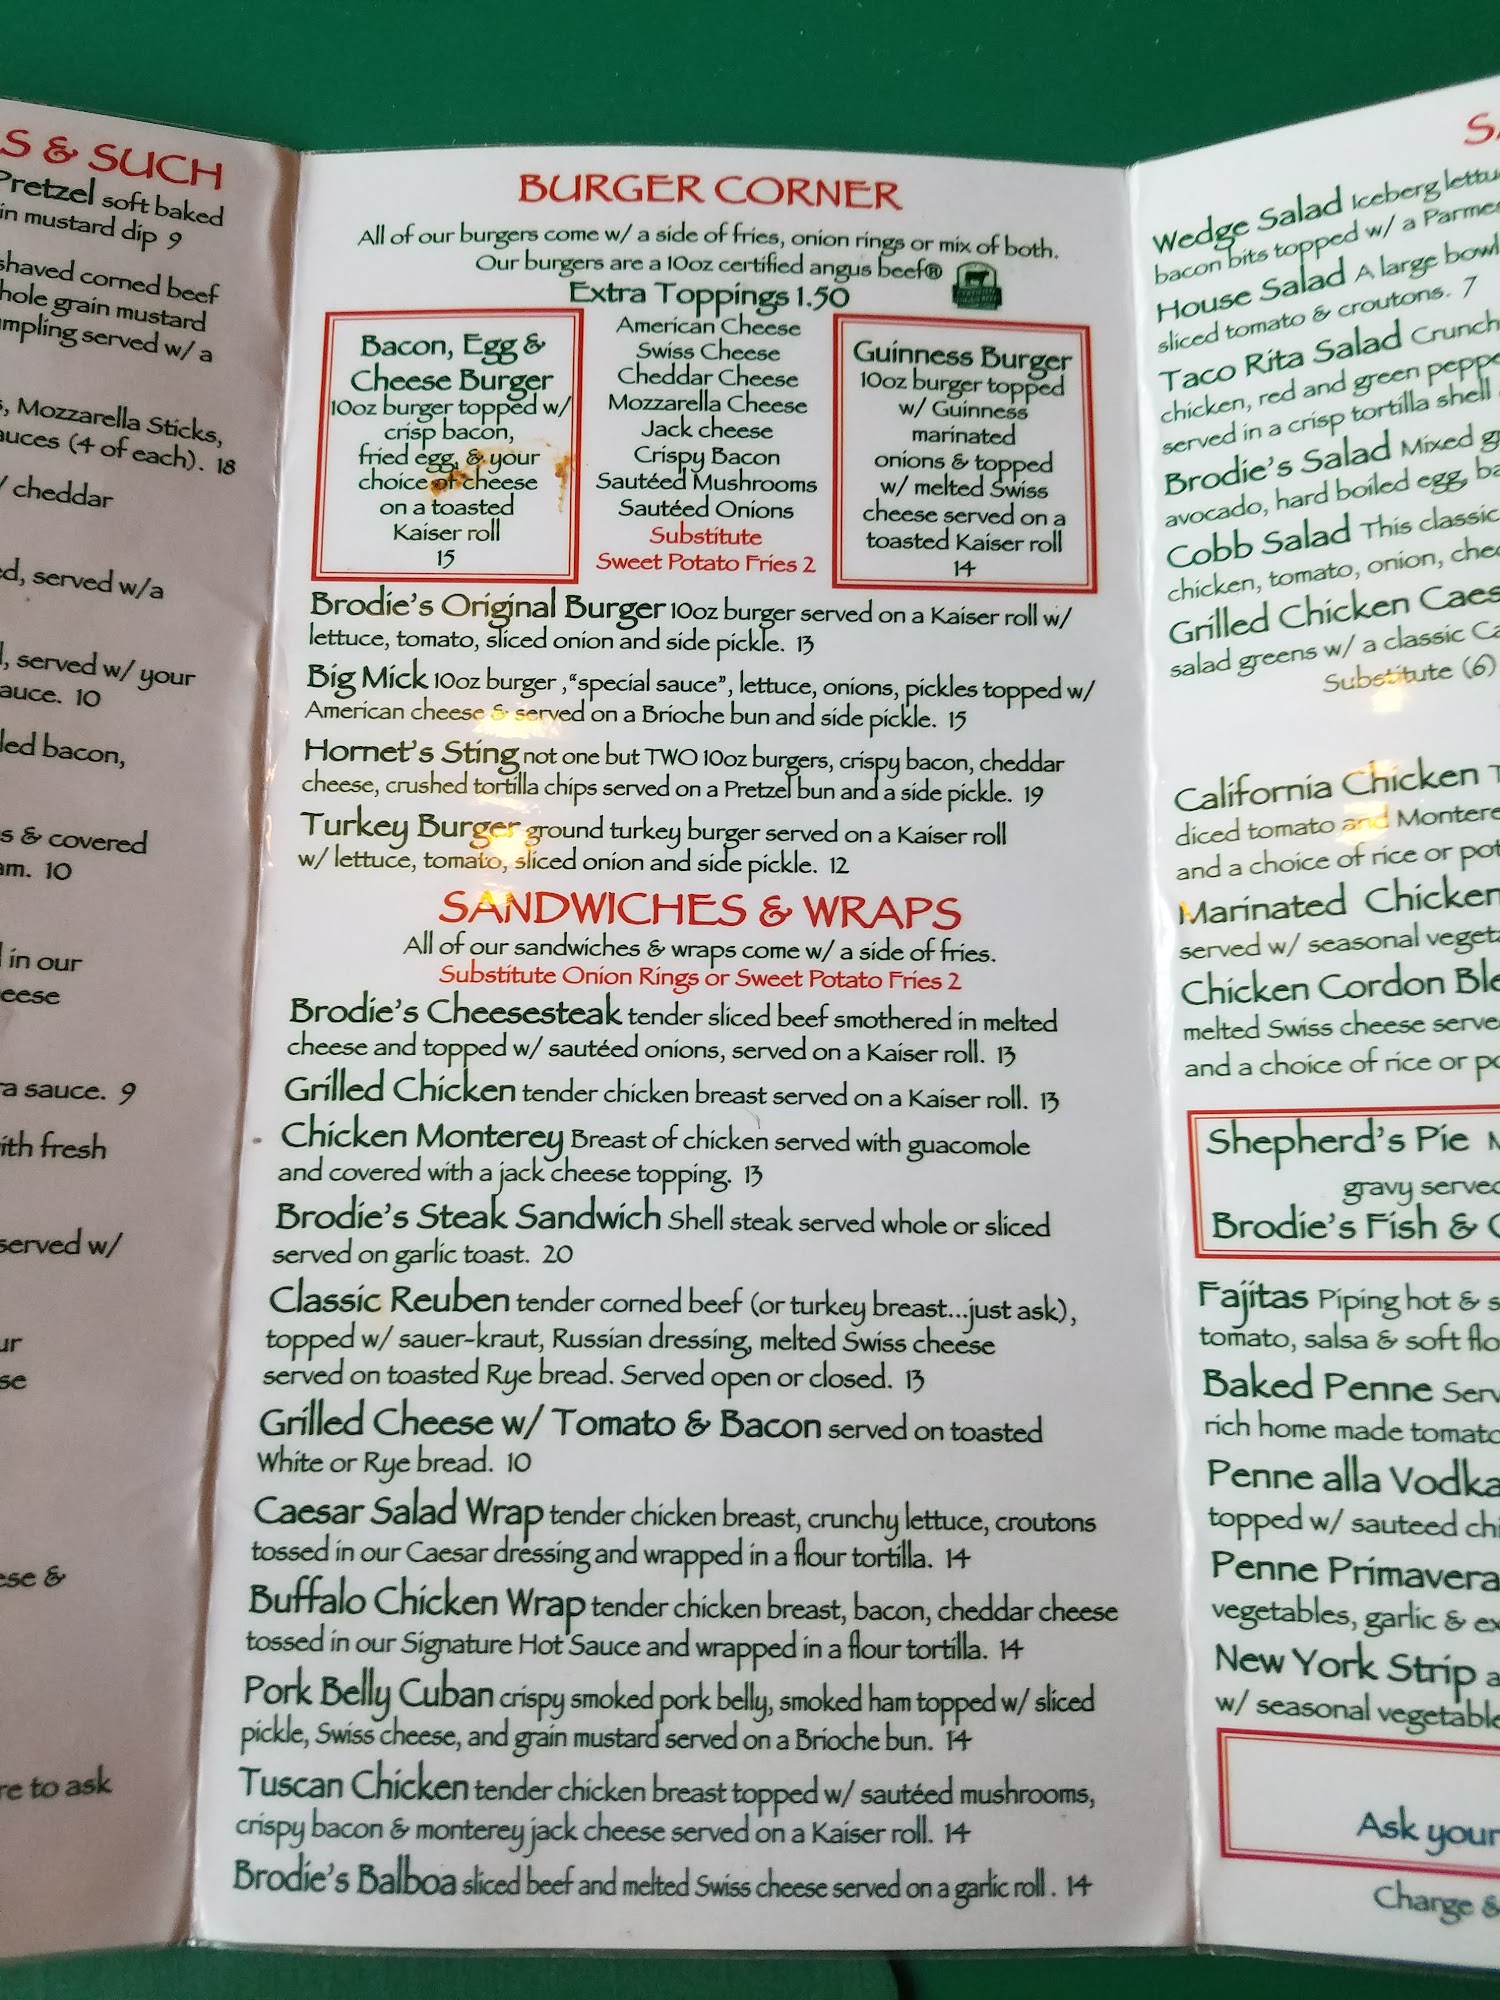 S & SUCH
Pretzel soft baked
in mustard dip 9
shaved corned beef
hole grain mustard
mpling served w/ a
s, Mozzarella Sticks,
auces (4 of each). 18
/ cheddar
ed, served w/a
l, served w/ your
auce. 10
led bacon,
s & covered
am. 10
l in our
eese
ra sauce. 9
ith fresh
served w/
ur
se
ese &
re to ask
BURGER CORNER
All of our burgers come w/ a side of fries, onion rings or mix of both.
Our burgers are a 10oz certified angus beef®
Extra Toppings 1.50
Bacon, Egg &
Cheese Burger
10oz burger topped w/
crisp bacon,
fried egg, & your
choice of cheese
on a toasted
Kaiser roll
15
American Cheese
Swiss Cheese
Cheddar Cheese
Mozzarella Cheese
Jack cheese
Crispy Bacon
Sautéed Mushrooms
Sautéed Onions
Substitute
Sweet Potato Fries 2
Guinness Burger
10oz burger topped
w/ Guinness
marinated
onions & topped
w/ melted Swiss
cheese served on a
toasted Kaiser roll
14
Brodie's Original Burger 10oz burger served on a Kaiser roll w/
lettuce, tomato, sliced onion and side pickle. 13
Big Mick 10oz burger ,“special sauce”, lettuce, onions, pickles topped w/
American cheese & served on a Brioche bun and side pickle. 15
Hornet's Sting not one but TWO 10oz burgers, crispy bacon, cheddar
cheese, crushed tortilla chips served on a Pretzel bun and a side pickle. 19
Turkey Burger ground turkey burger served on a Kaiser roll
w/ lettuce, tomato, sliced onion and side pickle. 12
SANDWICHES & WRAPS
All of our sandwiches & wraps come w/ a side of fries.
Substitute Onion Rings or Sweet Potato Fries 2
Brodie's Cheesesteak tender sliced beef smothered in melted
cheese and topped w/ sautéed onions, served on a Kaiser roll. 13
Grilled Chicken tender chicken breast served on a Kaiser roll. 13
Chicken Monterey Breast of chicken served with guacomole
and covered with a jack cheese topping. 13
Brodie's Steak Sandwich Shell steak served whole or sliced
served on garlic toast. 20
Classic Reuben tender corned beef (or turkey breast...just ask),
topped w/ sauer-kraut, Russian dressing, melted Swiss cheese
served on toasted Rye bread. Served open or closed. 13
Grilled Cheese w/ Tomato & Bacon served on toasted
White or Rye bread. 10
Caesar Salad Wrap tender chicken breast, crunchy lettuce, croutons
tossed in our Caesar dressing and wrapped in a flour tortilla. 14
Buffalo Chicken Wrap tender chicken breast, bacon, cheddar cheese
tossed in our Signature Hot Sauce and wrapped in a flour tortilla. 14
Pork Belly Cuban crispy smoked pork belly, smoked ham topped w/ sliced
pickle, Swiss cheese, and grain mustard served on a Brioche bun. 14
Tuscan Chicken tender chicken breast topped w/ sautéed mushrooms,
crispy bacon & monterey jack cheese served on a Kaiser roll. 14
Brodie's Balboa sliced beef and melted Swiss cheese served on a garlic roll . 14
SA
Wedge Salad Iceberg lettu
bacon bits topped w/ a Parmes
House Salad A large bowl
sliced tomato & croutons. 7
Taco Rita Salad Crunch
chicken, red and green peppe
served in a crisp tortilla shell
Brodie's Salad Mixed gr
avocado, hard boiled egg, ba
Cobb Salad This classic
chicken, tomato, onion, chec
Grilled Chicken Caes
salad greens w/ a classic Ca
Substitute (6)
California Chicken T
diced tomato and Montere
and a choice of rice or pot
Marinated Chicken
served w/ seasonal vegeta
Chicken Cordon Ble
melted Swiss cheese serve
and a choice of rice or po
Shepherd's Pie M
gravy served
Brodie's Fish & C
Fajitas Piping hot & s
tomato, salsa & soft flo
Baked Penne Serv
rich home made tomato
Penne alla Vodka
topped w/ sauteed chi
Penne Primavera
vegetables, garlic & ex
New York Strip a
w/ seasonal vegetable
Ask your
Charge &